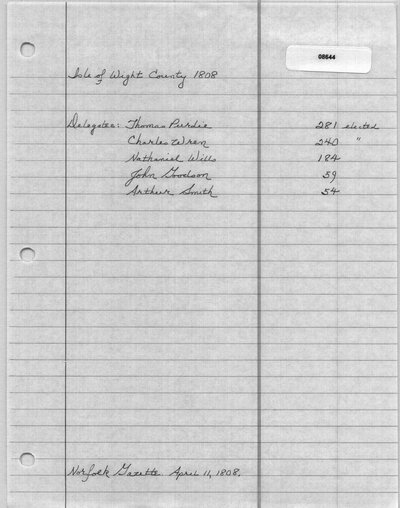 08644
Isle of Wight County 1808
Delegates: Thomas Purdie 281 elected
Charles Wren 240 "
Nathaniel Wills 184
John Goodson 59
Arthur Smith 54
Norfolk Gazette. April 11, 1808.